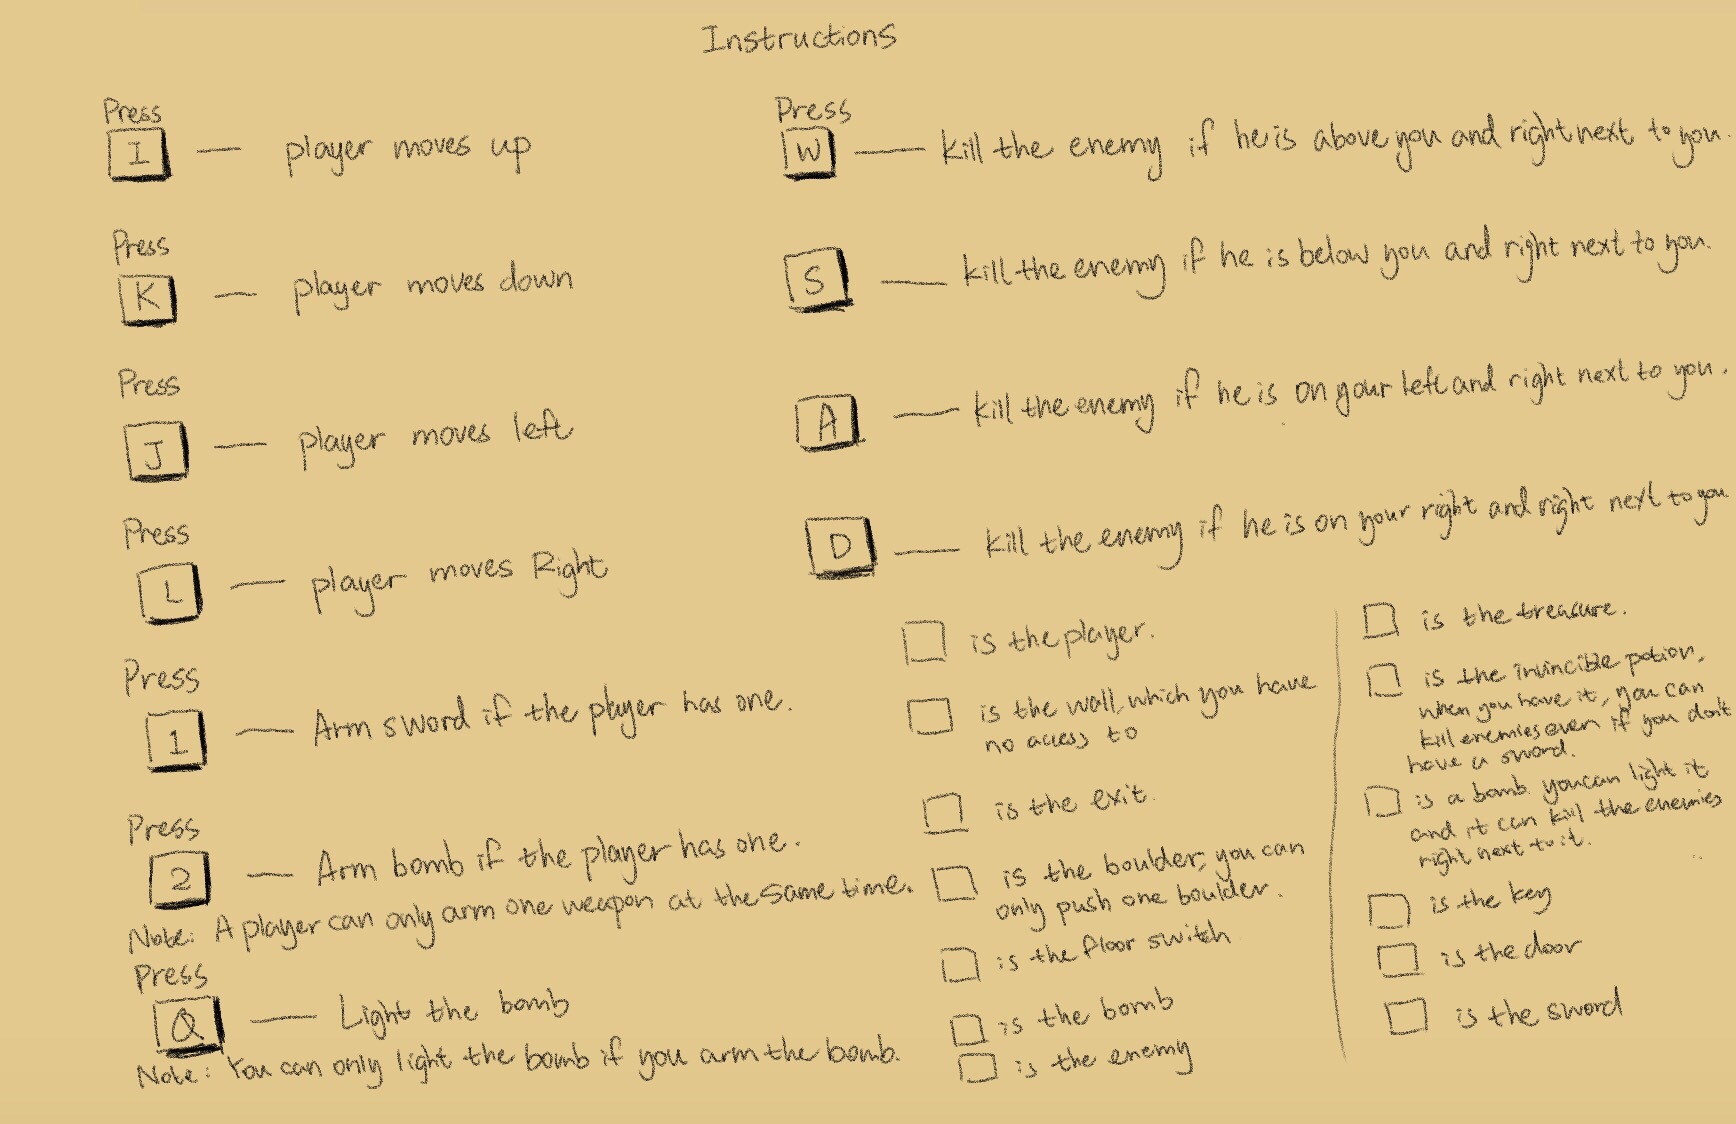 Instructions
Press
I — player moves up
Press
K — player moves down
Press
J — player moves left
Press
L — player moves Right
Press
1 — Arm sword if the player has one.
Press
2 — Arm bomb if the player has one.
Note: A player can only arm one weapon at the same time.
Press
Q — Light the bomb
Note: You can only light the bomb if you arm the bomb.
Press
W — kill the enemy if he is above you and right next to you.
S — kill the enemy if he is below you and right next to you.
A — kill the enemy if he is on your left and right next to you.
D — kill the enemy if he is on your right and right next to you
is the player.
is the wall, which you have
no access to
is the exit.
is the boulder, you can
only push one boulder.
is the floor switch
is the bomb
is the enemy
is the treasure.
is the invincible potion,
when you have it, you can
kill enemies even if you don't
have a sword.
is a bomb you can light it
and it can kill the enemies
right next to it.
is the key
is the door
is the sword